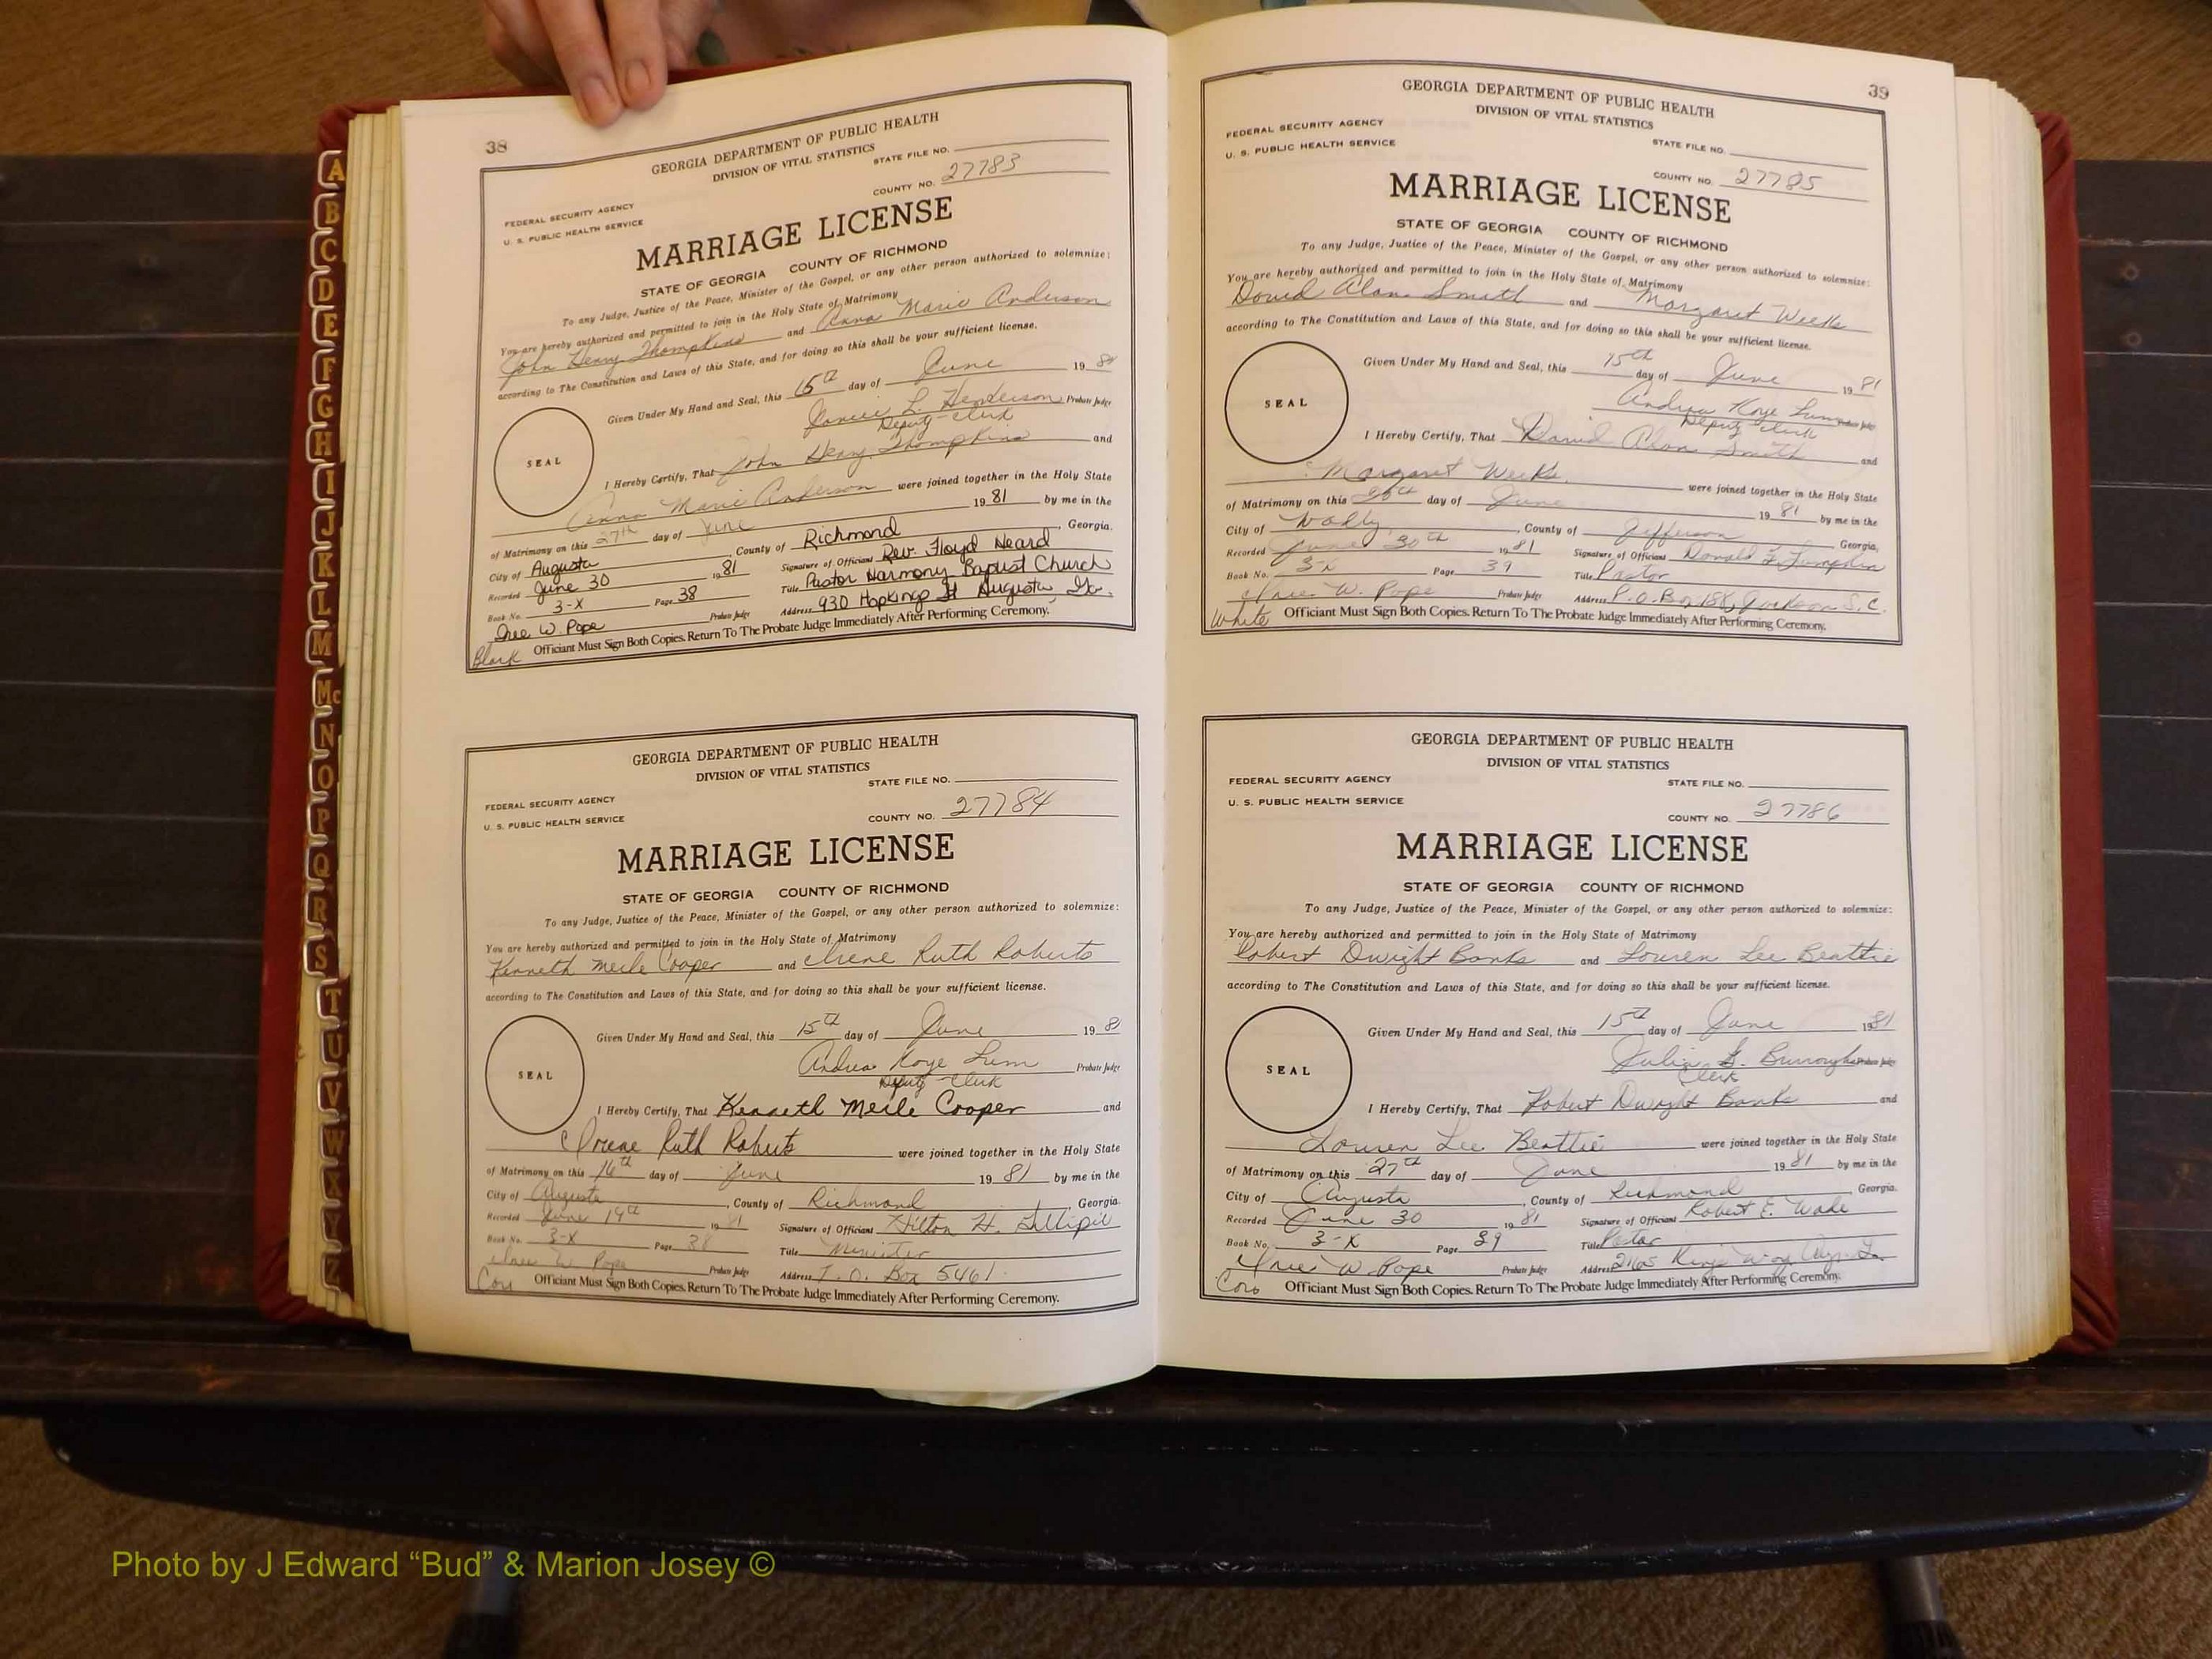 38
GEORGIA DEPARTMENT OF PUBLIC HEALTH
DIVISION OF VITAL STATISTICS
STATE FILE NO.
COUNTY NO. 27783
FEDERAL SECURITY AGENCY
U. S. PUBLIC HEALTH SERVICE
MARRIAGE LICENSE
STATE OF GEORGIA COUNTY OF RICHMOND
To any Judge, Justice of the Peace, Minister of the Gospel, or any other person authorized to solemnize:
You are hereby authorized and permitted to join in the Holy State of Matrimony
John Henry Thompkins and Anna Marie Anderson
according to The Constitution and Laws of this State, and for doing so this shall be your sufficient license.
Given Under My Hand and Seal, this 15th day of June 1981
Janice L. Henderson Probate Judge
Deputy Clerk
SEAL
I Hereby Certify, That John Henry Thompkins and
Anna Marie Anderson were joined together in the Holy State
of Matrimony on this 27th day of June 1981 by me in the
City of Augusta, County of Richmond, Georgia.
Recorded June 30 1981 Signature of Officiant Rev. Floyd Heard
Book No. 3-X Page 38 Title Pastor Harmony Baptist Church
W. Pope Probate Judge Address 930 Hopkins St Augusta, Ga.
Black Officiant Must Sign Both Copies. Return To The Probate Judge Immediately After Performing Ceremony.
GEORGIA DEPARTMENT OF PUBLIC HEALTH
DIVISION OF VITAL STATISTICS
STATE FILE NO.
FEDERAL SECURITY AGENCY
U. S. PUBLIC HEALTH SERVICE
COUNTY NO. 27784
MARRIAGE LICENSE
STATE OF GEORGIA COUNTY OF RICHMOND
To any Judge, Justice of the Peace, Minister of the Gospel, or any other person authorized to solemnize:
You are hereby authorized and permitted to join in the Holy State of Matrimony
Kenneth Merle Cooper and Irene Ruth Roberts
according to The Constitution and Laws of this State, and for doing so this shall be your sufficient license.
Given Under My Hand and Seal, this 15th day of June 1981
Andrea Kaye Probate Judge
Deputy Clerk
SEAL
I Hereby Certify, That Kenneth Merle Cooper and
Irene Ruth Roberts were joined together in the Holy State
of Matrimony on this 16th day of June 1981 by me in the
City of Augusta, County of Richmond, Georgia.
Recorded June 19th 1981 Signature of Officiant Hilton H.
Book No. 3-X Page 38 Title Minister
W. Pope Probate Judge Address P. O. Box 5461
Officiant Must Sign Both Copies. Return To The Probate Judge Immediately After Performing Ceremony.
39
GEORGIA DEPARTMENT OF PUBLIC HEALTH
DIVISION OF VITAL STATISTICS
FEDERAL SECURITY AGENCY
U. S. PUBLIC HEALTH SERVICE
STATE FILE NO.
COUNTY NO. 27785
MARRIAGE LICENSE
STATE OF GEORGIA COUNTY OF RICHMOND
To any Judge, Justice of the Peace, Minister of the Gospel, or any other person authorized to solemnize:
You are hereby authorized and permitted to join in the Holy State of Matrimony
David Alan Smith and Margaret Weeks
according to The Constitution and Laws of this State, and for doing so this shall be your sufficient license.
Given Under My Hand and Seal, this 15th day of June 1981
Andrea Kaye Probate Judge
Deputy Clerk
SEAL
I Hereby Certify, That David Alan Smith and
Margaret Weeks were joined together in the Holy State
of Matrimony on this day of June 1981 by me in the
City of Wadley, County of Jefferson Georgia,
Recorded June 30th 1981 Signature of Officiant Donald F.
Book No. 3-X Page 39 Title Pastor
W. Pope Probate Judge Address P.O. Box 188, Jackson S.C.
White Officiant Must Sign Both Copies. Return To The Probate Judge Immediately After Performing Ceremony.
GEORGIA DEPARTMENT OF PUBLIC HEALTH
DIVISION OF VITAL STATISTICS
FEDERAL SECURITY AGENCY
STATE FILE NO.
U. S. PUBLIC HEALTH SERVICE
COUNTY NO. 27786
MARRIAGE LICENSE
STATE OF GEORGIA COUNTY OF RICHMOND
To any Judge, Justice of the Peace, Minister of the Gospel, or any other person authorized to solemnize:
You are hereby authorized and permitted to join in the Holy State of Matrimony
Robert Dwight Banks and Lauren Lee Beattie
according to The Constitution and Laws of this State, and for doing so this shall be your sufficient license.
Given Under My Hand and Seal, this 15th day of June 1981
Julia G. Burroughs Probate Judge
Clerk
SEAL
I Hereby Certify, That Robert Dwight Banks and
Lauren Lee Beattie were joined together in the Holy State
of Matrimony on this 27th day of June 1981 by me in the
City of Augusta, County of Richmond, Georgia.
Recorded June 30 1981 Signature of Officiant Robert E. Wade
Book No. 3-X Page 39 Title Pastor
W. Pope Probate Judge Address Kings Way
Officiant Must Sign Both Copies. Return To The Probate Judge Immediately After Performing Ceremony.
A
B
C
D
E
F
G
H
I
J
K
L
M
Mc
N
O
P
Q
R
S
T
U
V
W
X
Y
Z
Photo by J Edward “Bud” & Marion Josey ©